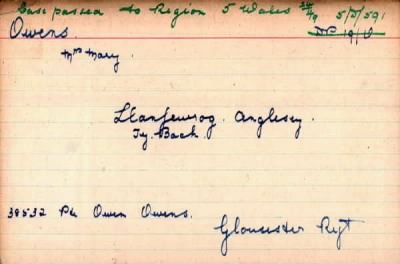 Case passed to Region 5 Wales 34/49 5/5/591
Owens. NP 19/W
Mrs Mary
Llanfewrog. Anglesey.
Ty. Bach.
38532 Pte Owen Owens.
Gloucester Rgt